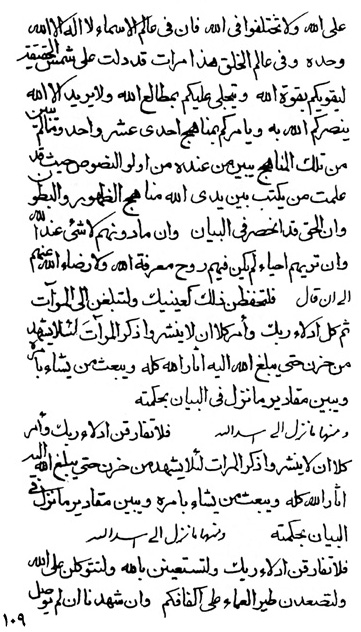 على الله ولا تختلفوا فى الله فان فى عالم الاسماء لا اله الا الله
وحده وفى عالم الخلق هذا مرات قد دلت على شمس الحقيقة
ليقوينكم بقوة الله وتجلى عليكم بمطالع الله ولا يريد الا الله
ينصركم الله به ويامركم بمناهج احدى عشر واحد وتمام
من تلك المناهج يبين من عنده من اولو النصوص حيث قد
علمت من يكتب بين يدى الله مناهج الظهور والبطون
وان الحق قد انحصر فى البيان وان ما دونهم كلاشئ عند الله
وان تريهم احياء لم يكن فيهم روح معرفة الله ولا رضاء الله عنهم
الى ان قال فلتحفظن ذلك كعينيك ولتبلغن الى المرآت
ثم كل ادلاء ربك وأمر كلا ان لا ينشر واذكر المرآت لئلا يشهد
من حزن حتى يبلغ الله اليه اثار الله كله ويبعث من يشاء بامره
ويبين مقادير ما نزل فى البيان بحكمته
ومنها ما نزل الى اسد الله فلا تفارقن ادلاء ربك وأمر
كلا ان لا ينشر واذكر المرات لئلا يشهد من حزن حتى يبلغ الله اليه
اثار الله كله ويبعث من يشاء بامره ويبين مقادير ما نزل فى
البيان بحكمته ومنها ما نزل الى اسد الله
فلا تفارقن ادلاء ربك ولتستعينن بالله ولتتوكلن على الله
ولتصعدن طير العماء على اكتافكم وان شهدنا ان لم توصل
١٠٩